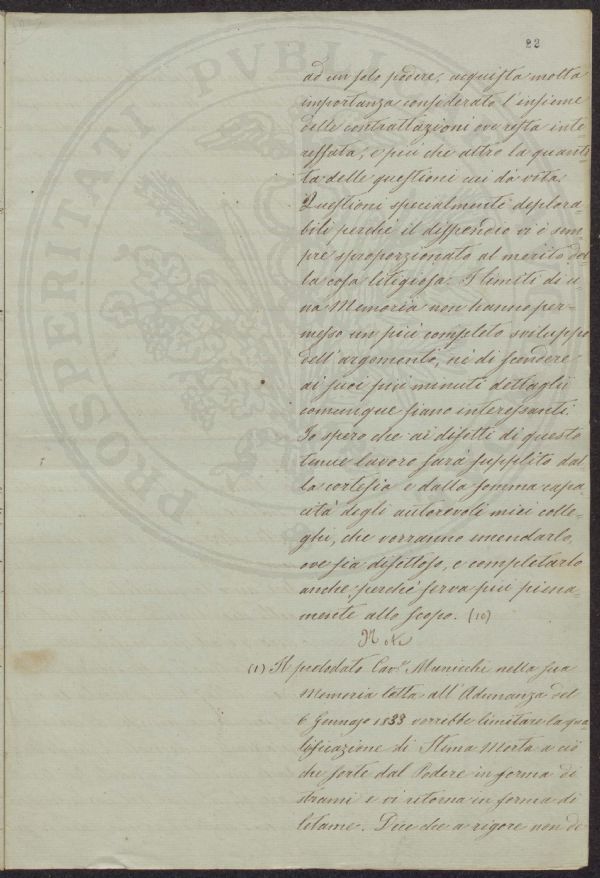 22
ad un solo podere, acquista molta
importanza considerato l'insieme
delle contrattazioni ove resta inte-
ressata, e più che altro la quanti-
tà delle questioni cui dà vita.
Questioni specialmente deplora-
bili perché il dispendio vi è sem
pre sproporzionato al merito del
la cosa litigiosa. I limiti di u
na Memoria non hanno per-
messo un più completo sviluppo
dell'argomento, nè di scendere
ai suoi più minuti dettagli
comunque siano interessanti.
Io spero che ai difetti di questo
tenue lavoro sarà supplito dal
la cortesia e dalla somma capa-
cità degli autorevoli miei colle-
ghi, che vorranno emendarlo,
ove sia difettoso, e completarlo
anche, perché serva più piena-
mente allo scopo. (10)
(1) Il prelodato Cav.e Municchi nella sua
Memoria letta all'Adunanza del
6 Gennajo 1833 vorrebbe limitare la qua
lificazione di Stima Morta a ciò
che sorte dal Podere in forma di
strami e vi ritorna in forma di
letame. Dice che a rigore non di
PROSPERITATI PVBLICAE